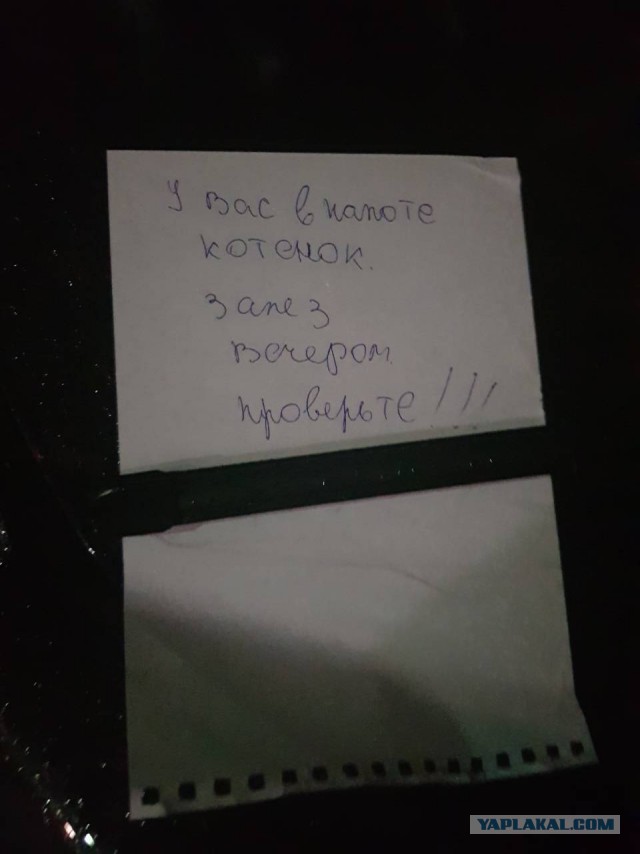 У вас в капоте
котенок.
залез
вечером
проверьте!!!
YAPLAKAL.COM